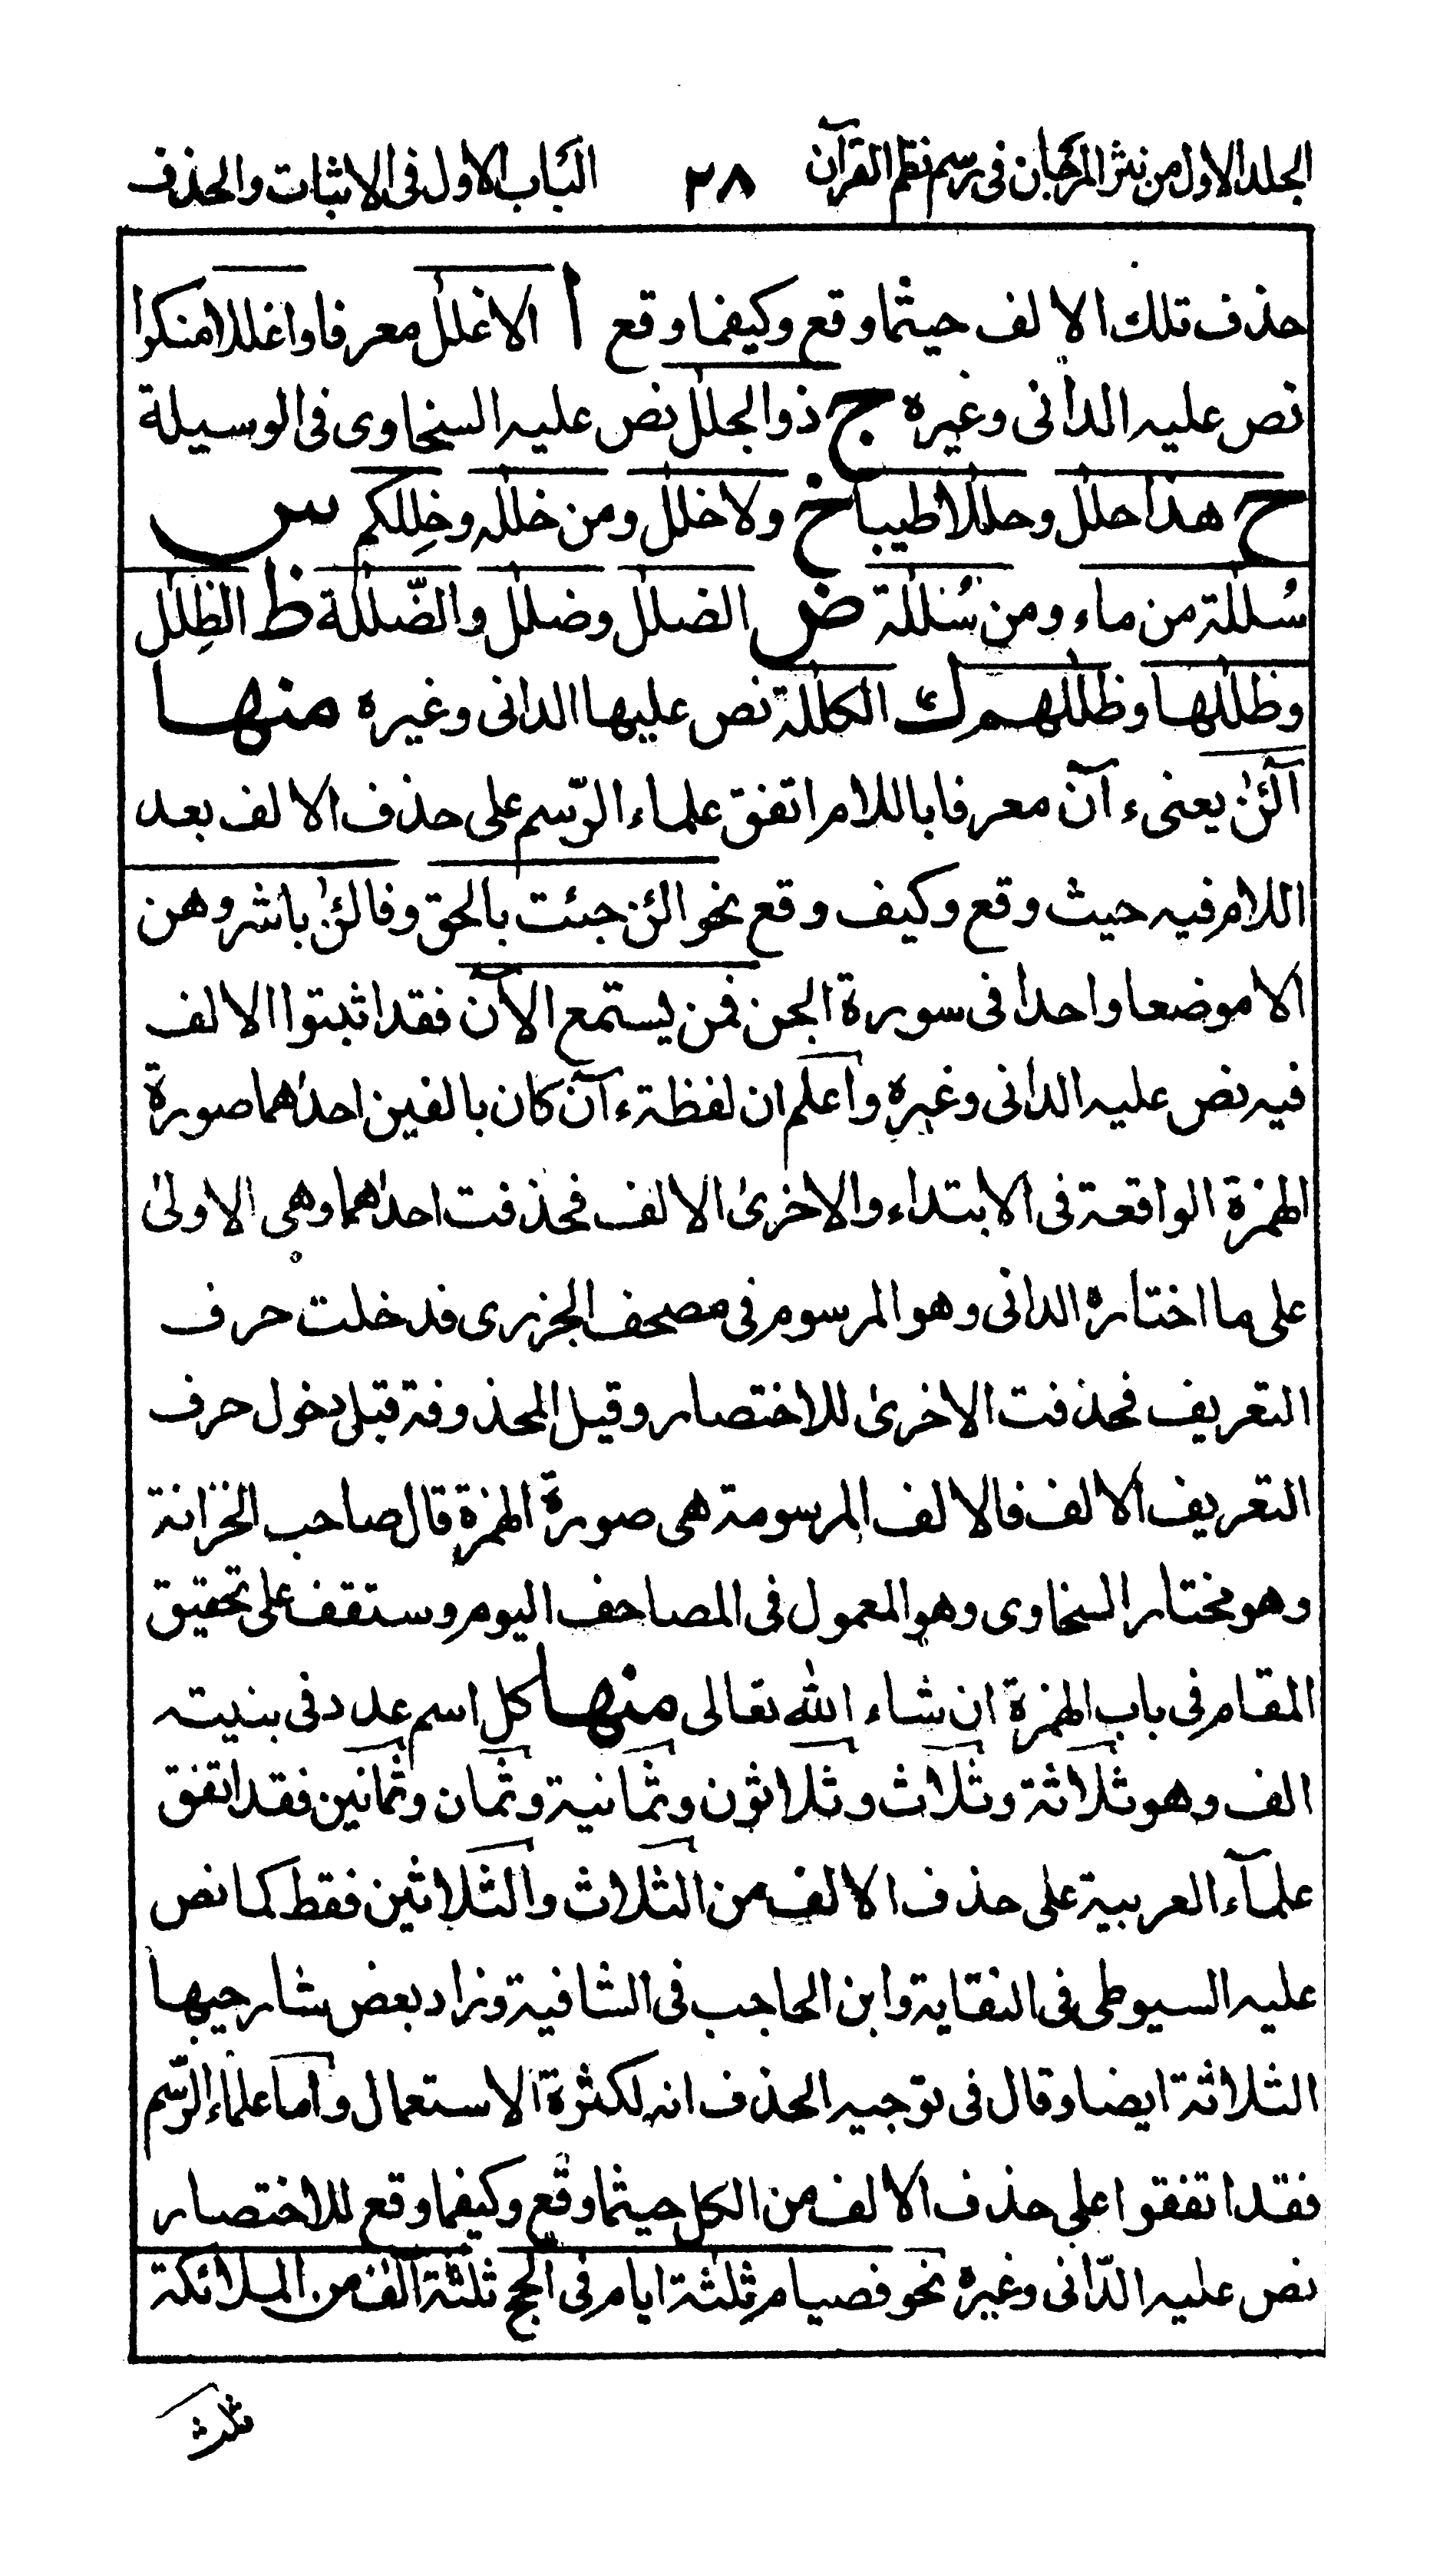 الجلد الاول من نثر المرجان فى رسم نظم القرآن ٢٨ الباب الاول فى الاثبات والحذف
حذف تلك الالف حيثما وقع وكيفما وقع أ الاغلل معرفا واغللا منكرا
نص عليه الدانى وغيره ج ذو الجلل نص عليه السخاوى فى الوسيلة
ح هذا حلل وحللا طيبا خ ولا خلل ومن خلله وخِللكم س
سُللة من ماء ومن سُللة ض الضلل وضلل والضّللة ظ الظِلل
وظللها وظللهم ك الكللة نص عليها الدانى وغيره منها
آلئٰن يعنى ء آن معرفا باللام اتفق علماء الرّسم على حذف الالف بعد
اللام فيه حيث وقع وكيف وقع نحو الئن جئت بالحق وفالئٰن باشروهن
الا موضعا واحدا فى سورة الجن فمن يستمع الآن فقد اثبتوا الالف
فيه نص عليه الدانى وغيره واعلم ان لفظة ء آن كان بالفين احدٰهما صورة
الهمزة الواقعة فى الابتداء والاخرىٰ الالف فحذفت احدٰهما وهى الاولىٰ
على ما اختاره الدانى وهو المرسوم فى مصحف الجزرى فدخلت حرف
التعريف فحذفت الاخرىٰ للاختصار وقيل المحذوفة قبل دخول حرف
التعريف الالف فالالف المرسومة هى صورة الهمزة قال صاحب الخزانة
وهو مختار السخاوى وهو المعمول فى المصاحف اليوم وستقف على تحقيق
المقام فى باب الهمزة ان شاء الله تعالى منها كل اسم عدد فى بنيته
الف وهو ثلاثة وثلاث وثلاثون وثمانية وثمان وثمانين فقد اتفق
علمآء العربية على حذف الالف من الثلاث والثلاثين فقط كما نص
عليه السيوطى فى النقاية وابن الحاجب فى الشافية وزاد بعض شارحيها
الثلاثة ايضا وقال فى توجيه الحذف انه لكثرة الاستعمال واما علماء الرّسم
فقد اتفقوا على حذف الالف من الكل حيثما وقع وكيفما وقع للاختصار
نص عليه الدّانى وغيره نحو فصيام ثلثة ايام فى الحج ثلثة آلٰف من الملائكة
ثلٰث